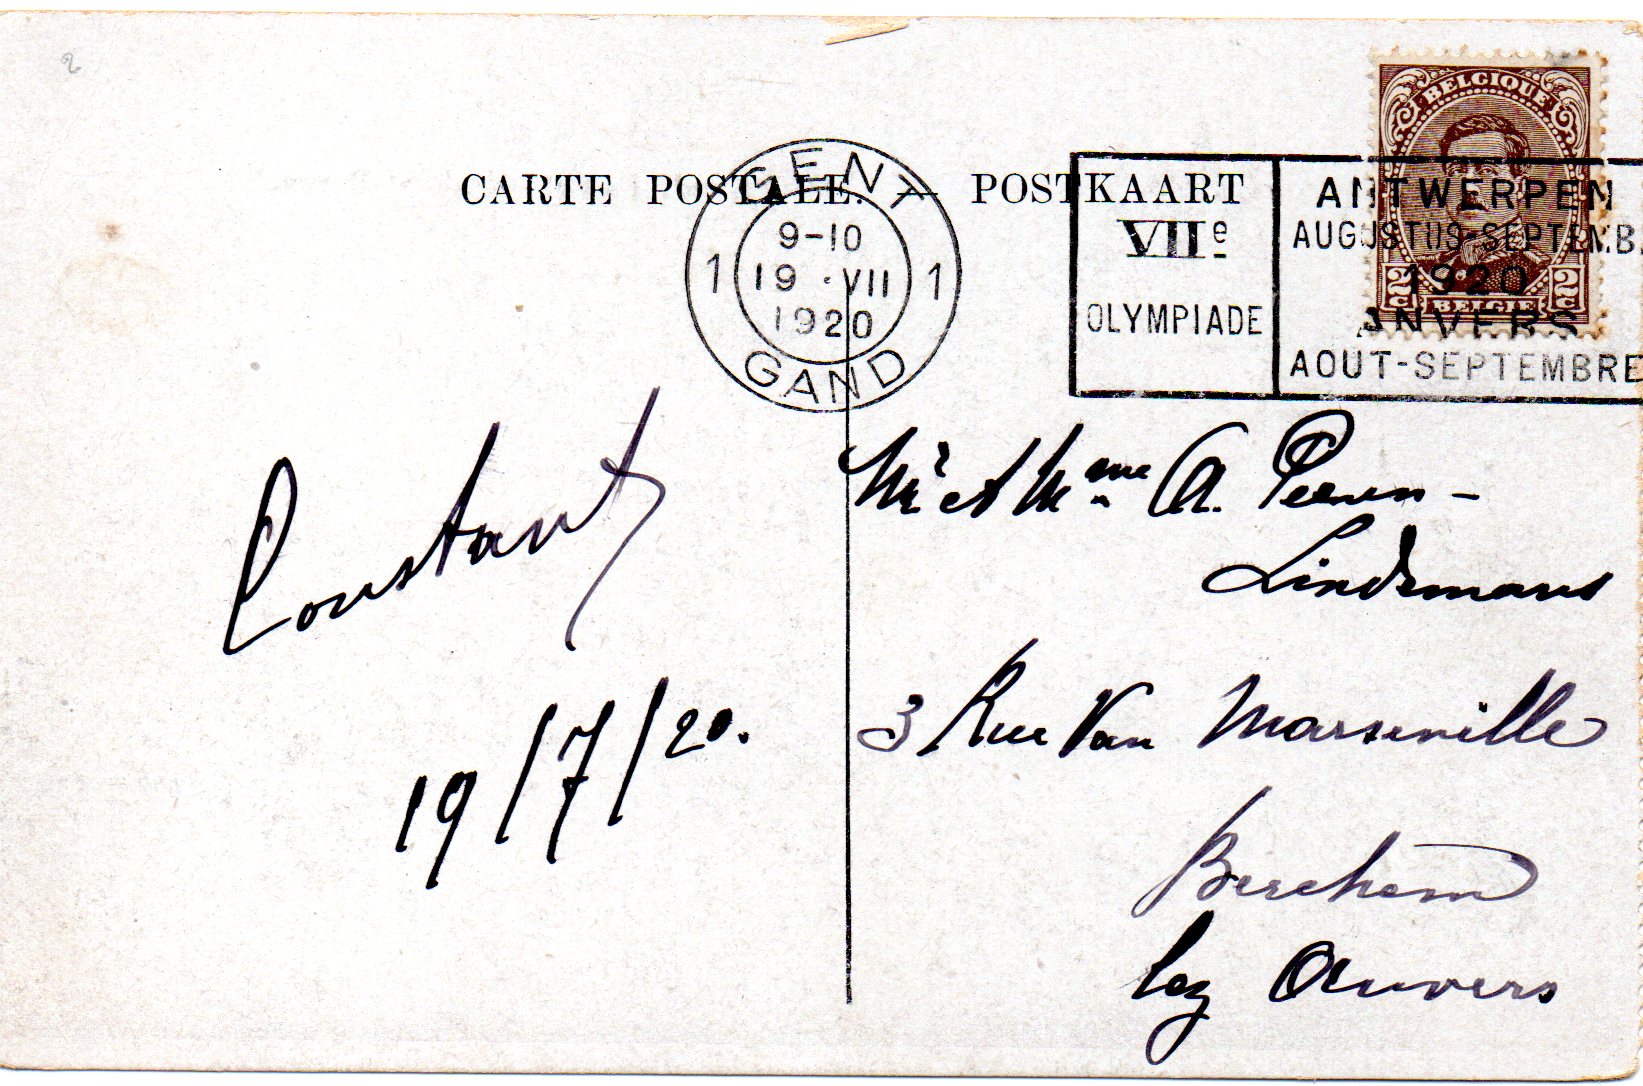 CARTE POSTALE. — POSTKAART
GENT
9-10
1 19 · VII 1
1920
GAND
VIIe
OLYMPIADE
ANTWERPEN
AUGUSTUS-SEPTEMB
1920
ANVERS
AOUT-SEPTEMBRE
BELGIQUE
2c 2c
BELGIE
Constant
19/7/20.
Mr et Mme A. Peeren-
Lindemans
3 Rue Van Marseville
Berchem
lez Anvers